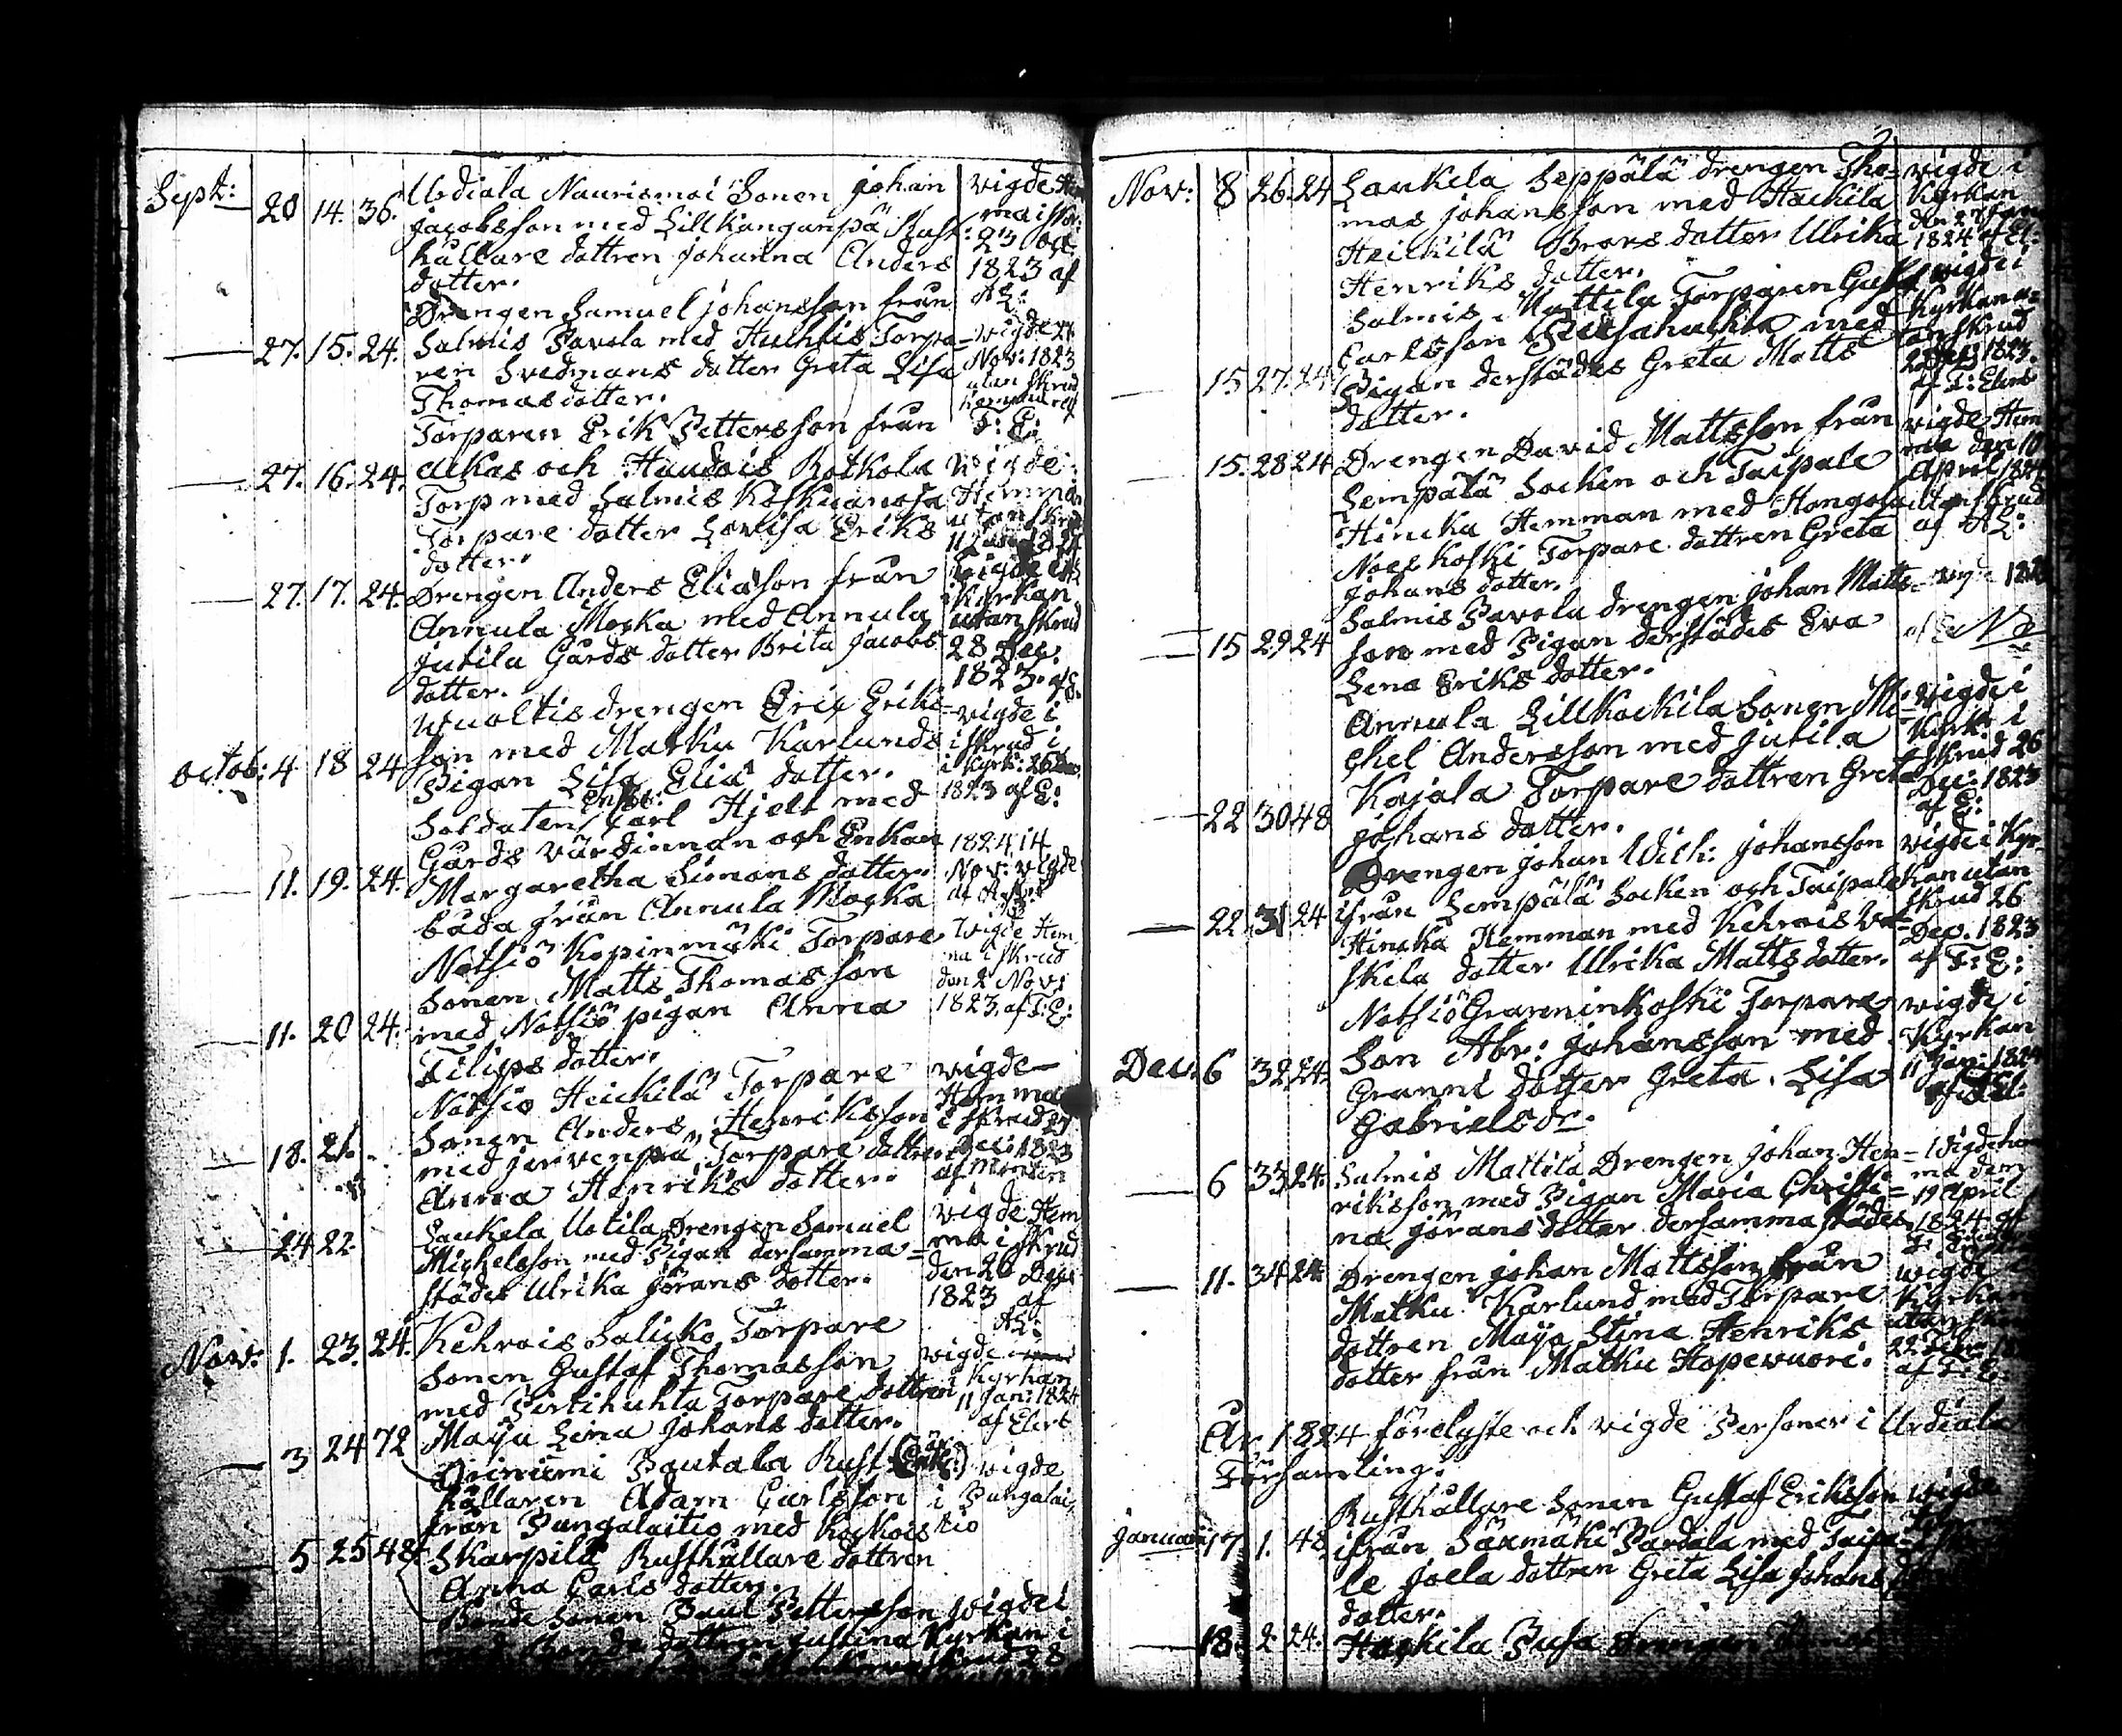 Sept: 20 14. 36. Urdiala Naurismai Sonen Johan
Jacobsson med Lillkanganpä Rust=
hållare dottren Johanna Anders
dotter.
vigde
23 Oct.
1823 af
AL:
Drengen Samuel Johansson från
27. 15. 24. Salmis Pavola med Huhtis Torpa=
ren Svedmans dotter Greta Lisa
Thomasdotter.
vigde
Nov: 1823
utan skrud
F: E:
Torparen Erik Pettersson från
27. 16. 24. och Haudois Rotkola
Torp med Salmis Koskuanoja
Torpare dotter Lovisa Eriks
dotter.
vigde
Hemma
utan skrud
27. 17. 24. Drengen Anders Eliasson från
Annula Mocka med Annula
Jutila Gårds dotter Brita Jacobs
dotter.
i Kyrkan
utan skrud
28 Dec.
1823. af E.
Wuoltis drengen Eric Eriks=
octob: 4 18 24 son med Matku Karlunds
Pigan Lisa Elias dotter.
vigde i
i skrud i
i Kyrk: 26
1823 af E:
Soldaten Carl Hjelt med
Gårds värdinnan och Enkan
11. 19. 24. Margaretha Simons dotter.
båda från Annula Mocka
1824 14
Nov: vigde
Notsiö Kopinmäki Torpare
Sonen Matts Thomasson
11. 20 24. med Notsiö pigan Anna
Filips dotter.
vigde Hem
ma i skrud
den 2 Nov:
1823. af F: E:
Notsiö Heickilä Torpare
Sonen Anders Henriksson
18. 21. med Jervenpä Torpare dottren
Anna Henriks dotter.
vigde
Hemma
i skrud 27
Dec: 1823
24 22 Laukela Uotila Drengen Samuel
Michelsson med Pigan dersamma=
städes Ulrika Jörans dotter.
vigde Hem
ma i skrud
den 26 Dec:
1823 af
AL:
Nov: 1. 23. 24. Kehrois Salicko Torpare
Sonen Gustaf Thomasson
med Pirtihuhta Torpare dottren
Maija Lena Johans dotter.
vigde
i Kyrkan
11 Jan: 1824
af Elers
3 24 72 Pautala Rust
hållaren Adam Carlsson
från Pungalaitio med Kockois
vigde
i Pungalai
tio
5 25 48 Skarpila Rusthållare dottren
Anna Carls dotter.
Bonde sonen Paul Pettersson
med Bonde dottren Justina
vigde i
Kyrkan i
skrud 28
Nov: 8 26. 24 Laukela Seppälä drengen Tho=
mas Johansson med Hackila
Heickilä Brors dotter Ulrika
Henriks dotter.
vigde i
Kyrkan
den 27 Jan
1824 af El:
Salmis Mattila Torparen Gustaf
Carlsson med
15 27. 24 Pigan derstädes Greta Matts
dotter.
vigde i
Kyrkan u=
tan skrud
1823.
af F: Elers
15. 28 24 Drengen David Mattsson från
Lempälä Socken och Taipale
Hincka Hemman med Hongola
Noelkoski Torpare dottren Greta
Johans dotter.
vigde Hem
ma den 10
April 1824
utan skrud
af AL:
Salmis Pavola drengen Johan Matts=
15 29 24 son med Pigan derstädes Eva
Lena Eriks dotter.
Annula Lillkockila Sonen Mi=
chel Andersson med Jutila
22 30 48 Kajala Torpare dottren Greta
Johans dotter.
vigde i
Kyrk: i
skrud 26
Dec: 1823
af E:
Drengen Johan Wilh: Johansson
22 31 24 från Lempälä Socken och Taipale
Hincka Hemman med Kehrois Va=
skela dotter Ulrika Matts dotter.
vigde i Kyr=
kan utan
skrud 26
Dec. 1823
af F: E:
Notsiö Graninkoski Torpare
Dec: 6 32 24. Son Abr: Johansson med
Granni dotter Greta Lisa
Gabrielsdr.
vigde i
Kyrkan
11 Jan: 1824
6 33 24. Salmis Mattila Drengen Johan Hen=
riksson med Pigan Maria Christi=
na Jörans dotter dersammastädes
vigde hem
ma den
19 April
1824 af
11. 34 24 Drengen Johan Mattsson från
Matku Karlund med Torpare
dottren Maja Stina Henriks
dotter från Matku Hopevuori.
vigde i
Kyrkan
utan skrud
af F: E:
År 1824 förelyste och vigde Personer i Urdiala
Församling.
Januarii 17 1. 48 Rusthållare Sonen Gustaf Eriksson
ifrån Säxmäki Pardala med Taipa=
le Joela dottren Greta Lisa Johans
dotter.
vigde
18. 2 24. Hackila Pusa Drengen